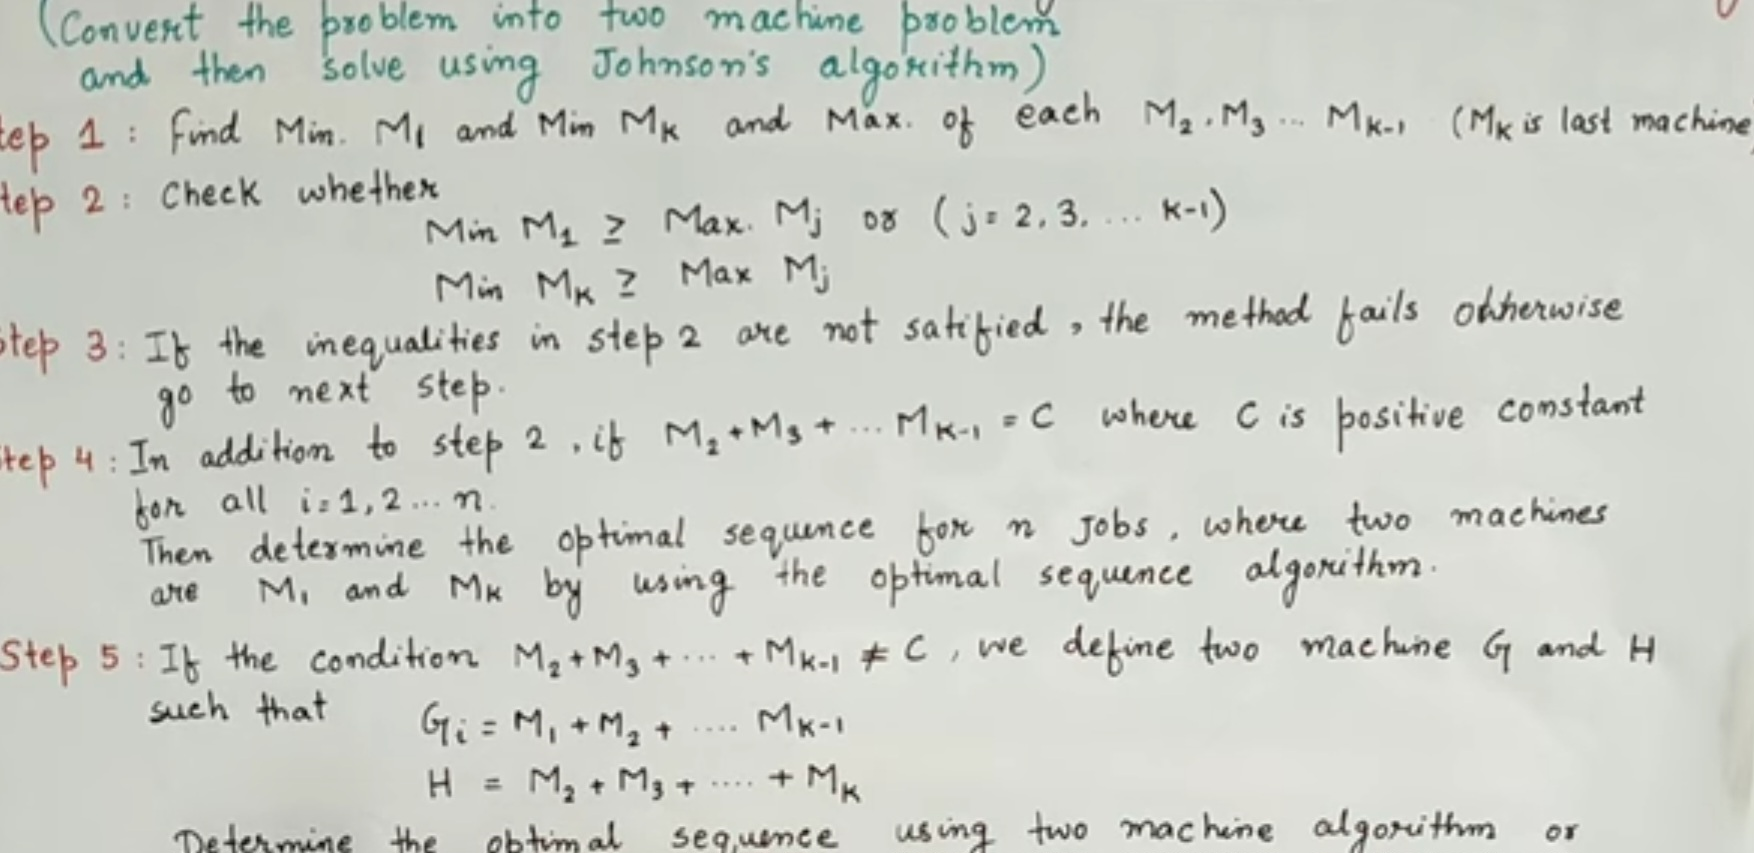 (Convert the problem into two machine problem
and then solve using Johnson's algorithm)
tep 1 : Find Min. M₁ and Min Mₖ and Max. of each M₂, M₃ ... Mₖ₋₁ (Mₖ is last machine
tep 2 : Check whether
Min M₁ ≥ Max. Mⱼ or (j = 2, 3, ... K-1)
Min Mₖ ≥ Max Mⱼ
Step 3 : If the inequalities in step 2 are not satified, the method fails ohherwise
go to next step.
tep 4 : In addition to step 2, if M₂ + M₃ + ... Mₖ₋₁ = C where C is positive constant
for all i = 1, 2 ... n.
Then determine the optimal sequence for n Jobs, where two machines
are M₁ and Mₖ by using the optimal sequence algorithm.
Step 5 : If the condition M₂ + M₃ + ... + Mₖ₋₁ ≠ C, we define two machine G and H
such that Gᵢ = M₁ + M₂ + .... Mₖ₋₁
H = M₂ + M₃ + .... + Mₖ
Determine the optimal sequence using two machine algorithm or